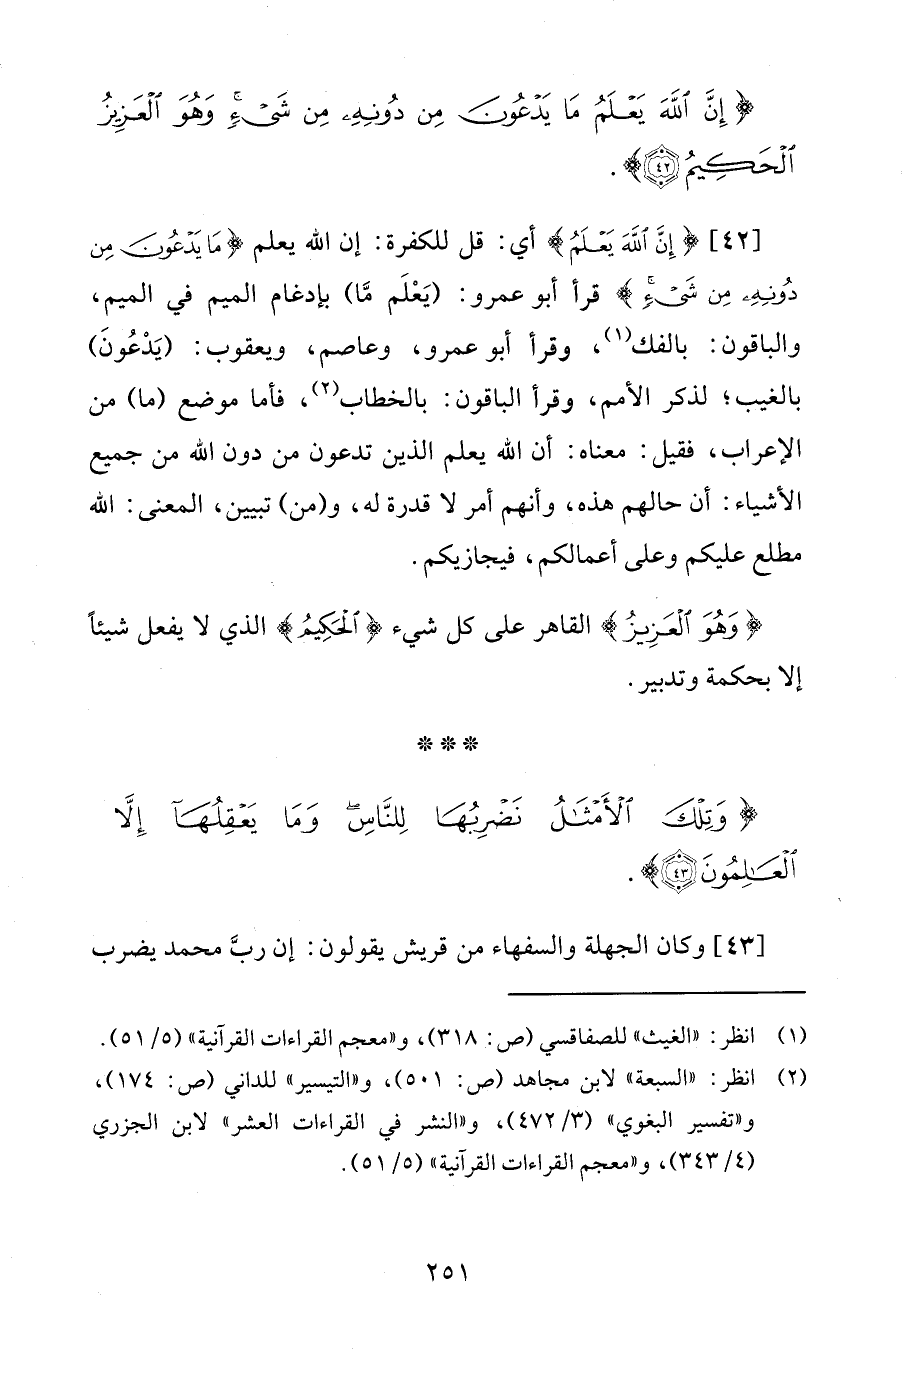 ﴿ إِنَّ ٱللَّهَ يَعْلَمُ مَا يَدْعُونَ مِن دُونِهِۦ مِن شَىْءٍۚ وَهُوَ ٱلْعَزِيزُ
ٱلْحَكِيمُ ﴿٤٢﴾ .
[٤٢] ﴿ إِنَّ ٱللَّهَ يَعْلَمُ ﴾ أي: قل للكفرة: إن الله يعلم ﴿ مَا يَدْعُونَ مِن
دُونِهِۦ مِن شَىْءٍۚ ﴾ قرأ أبو عمرو: (يَعْلَم مَّا) بإدغام الميم في الميم،
والباقون: بالفك(١)، وقرأ أبو عمرو، وعاصم، ويعقوب: (يَدْعُونَ)
بالغيب؛ لذكر الأمم، وقرأ الباقون: بالخطاب(٢)، فأما موضع (ما) من
الإعراب، فقيل: معناه: أن الله يعلم الذين تدعون من دون الله من جميع
الأشياء: أن حالهم هذه، وأنهم أمر لا قدرة له، و(من) تبيين، المعنى: الله
مطلع عليكم وعلى أعمالكم، فيجازيكم.
﴿ وَهُوَ ٱلْعَزِيزُ ﴾ القاهر على كل شيء ﴿ ٱلْحَكِيمُ ﴾ الذي لا يفعل شيئاً
إلا بحكمة وتدبير.
***
﴿ وَتِلْكَ ٱلْأَمْثَٰلُ نَضْرِبُهَا لِلنَّاسِۖ وَمَا يَعْقِلُهَآ إِلَّا
ٱلْعَٰلِمُونَ ﴿٤٣﴾ .
[٤٣] وكان الجهلة والسفهاء من قريش يقولون: إن ربَّ محمد يضرب
(١) انظر: «الغيث» للصفاقسي (ص: ٣١٨)، و«معجم القراءات القرآنية» (٥/ ٥١).
(٢) انظر: «السبعة» لابن مجاهد (ص: ٥٠١)، و«التيسير» للداني (ص: ١٧٤)،
و«تفسير البغوي» (٣/ ٤٧٢)، و«النشر في القراءات العشر» لابن الجزري
(٤/ ٣٤٣)، و«معجم القراءات القرآنية» (٥/ ٥١).
٢٥١